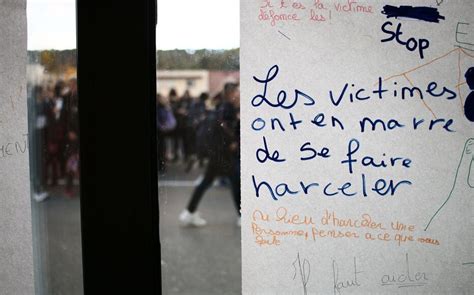 Si t es la victime
défonce les!
Stop
E
MENT
Les victimes
ont en marre
de se faire
harceler
Au lieu d'harceler une
Personne, penser a ce que vous
Il faut aider